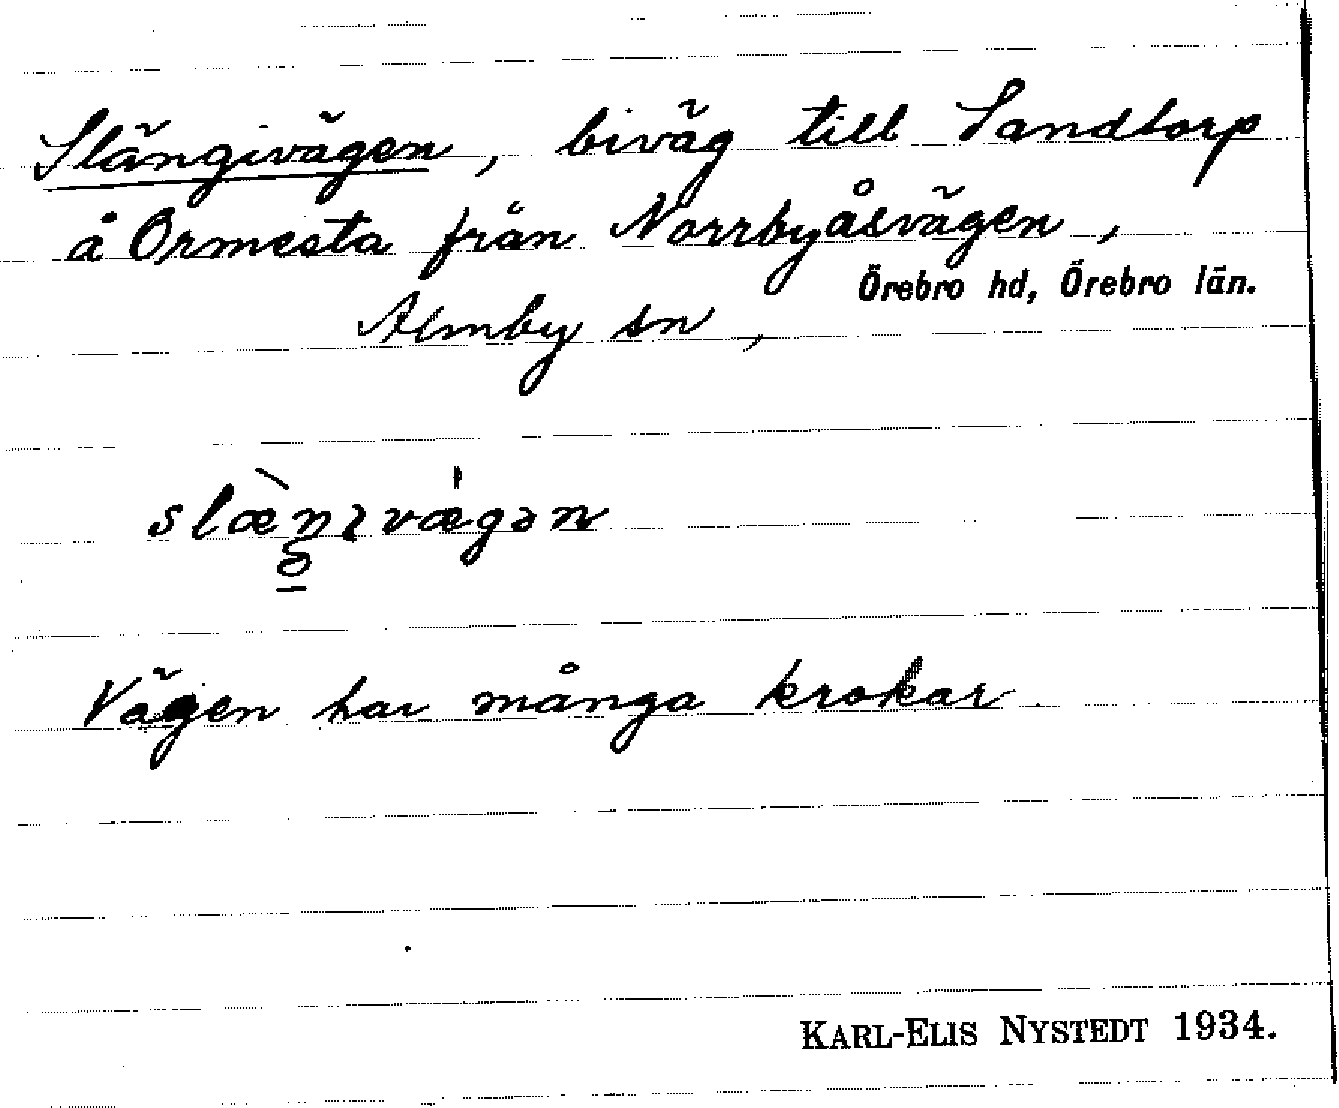 Slängivägen, biväg till Sandtorp
å Ormesta från Norrbyåsvägen,
Örebro hd, Örebro län.
Almby sn,
slæ̀ŋıvæ̍gən
Vägen har många krokar
KARL-ELIS NYSTEDT 1934.